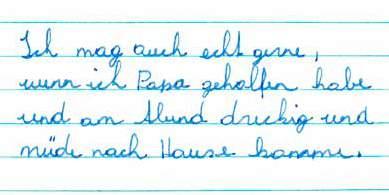 Ich mag auch echt gerne,
wenn ich Papa geholfen habe
und am Abend dreckig und
müde nach Hause komme.